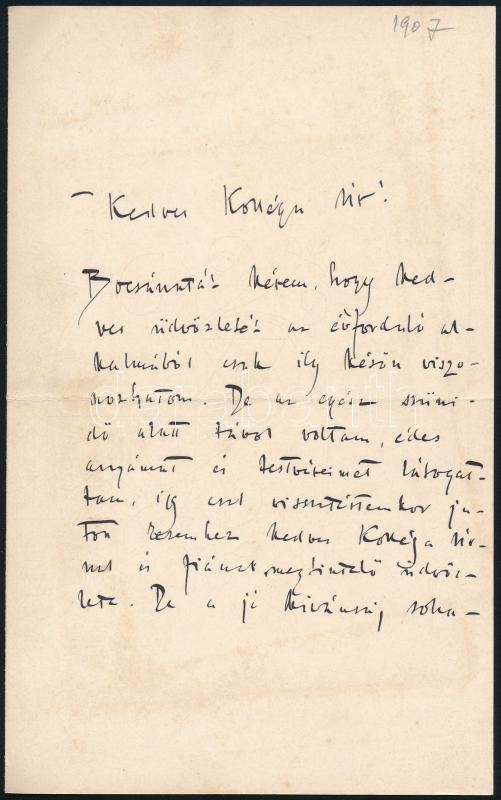 1907
Kedves Kolléga Úr!
Bocsánatát kérem, hogy ked-
ves üdvözletét az évforduló al-
kalmából csak ily későn viszo-
nozhatom. De az egész szüni-
dő alatt távol voltam, édes
anyámat és testvéreimet látogat-
tam, így csak visszatértemkor ju-
tott kezemhez kedves Kolléga úr-
nak és fiának megtisztelő üdvöz-
lete. De a jó kivánság soha-
darabanth